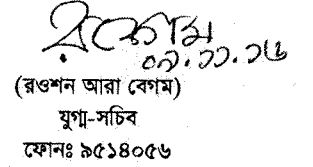 ০৯.১১.১৬
(রওশন আরা বেগম)
যুগ্ম-সচিব
ফোনঃ ৯৫১৪০৫৬